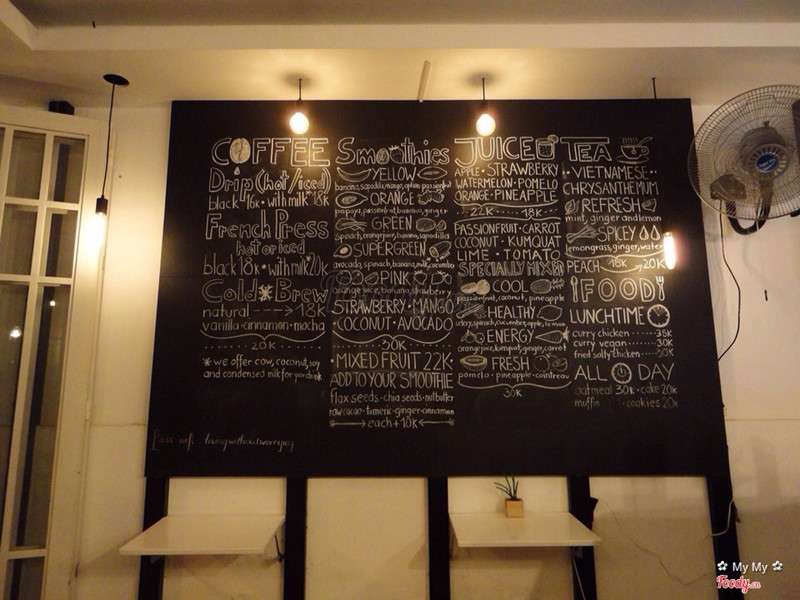 COFFEE
Drip (hot/iced)
black 16k • with milk 18k
French Press
hot or iced
black 18k • with milk 20k
Cold Brew
natural ----> 18K
vanilla • cinnamon • mocha
20K
* we offer cow, coconut, soy
and condensed milk for your drink
Pass wifi:
Smoothies
YELLOW
banana, sapodilla, mango,
ORANGE
papaya, passionfruit, banana, ginger
GREEN
spinach, orange juice, banana, sapodilla
SUPERGREEN
avocado, spinach, banana, milk,
PINK
orange juice, banana, strawberry
STRAWBERRY • MANGO
• COCONUT • AVOCADO
30K
• MIXED FRUIT 22K
ADD TO YOUR SMOOTHIE
flax seeds • chia seeds • nutbutter
raw cacao • turmeric • ginger • cinnamon
each + 10K
JUICE
APPLE • STRAWBERRY
WATERMELON • POMELO
ORANGE • PINEAPPLE
22K 18K
PASSIONFRUIT • CARROT
COCONUT • KUMQUAT
LIME • TOMATO
SPECIALLY MIXED
COOL
passionfruit, coconut, pineapple
HEALTHY
spinach, cucumber, apple,
ENERGY
orange juice, kumquat, ginger, carrot
FRESH
pomelo • pineapple • cointreau
30K
TEA
• VIETNAMESE •
CHRYSANTHEMUM
REFRESH
mint, ginger and lemon
SPICY
lemongrass, ginger,
PEACH 18K 20K
¡FOOD!
LUNCHTIME
curry chicken 35K
curry vegan 30K
fried salty chicken 50K
ALL DAY
oatmeal 30K • cake 20K
muffin • cookies 20K
My My
Foody.vn